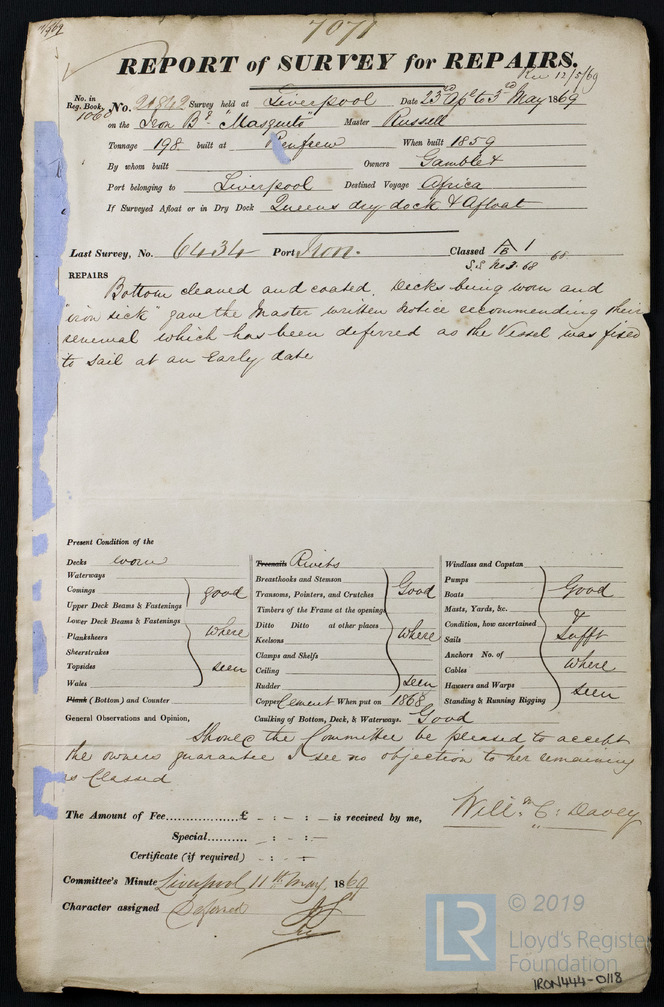 7071
REPORT of SURVEY for REPAIRS.
Rec 12/5/69
No. in Reg. Book, 1060 No. 21842 Survey held at Liverpool Date 23rd Ap'l to 3rd May 1869
on the Iron Bk "Masquito" Master Russell
Tonnage 198 built at Renfrew When built 1859
By whom built Owners Gamble &
Port belonging to Liverpool Destined Voyage Africa
If Surveyed Afloat or in Dry Dock Queens dry dock & Afloat
Last Survey, No. 6434 Port Iron. Classed A/B 1
S.S. No 3. 68
REPAIRS
Bottom cleaned and coated. Decks being worn and
"iron sick" gave the Master written notice recommending their
renewal which has been deferred as the Vessel was fixed
to sail at an early date
Present Condition of the
Decks worn
Waterways
Comings
Upper Deck Beams & Fastenings
Lower Deck Beams & Fastenings
Planksheers
Sheerstrakes
Topsides
Wales
good
where
seen
Plank (Bottom) and Counter
Treenails Rivets
Breasthooks and Stemson
Transoms, Pointers, and Crutches
Timbers of the Frame at the openings
Ditto Ditto at other places
Keelsons
Clamps and Shelfs
Ceiling
Rudder
Good
where
seen
Copper Cement When put on 1868
Caulking of Bottom, Deck, & Waterways. Good
Windlass and Capstan
Pumps
Boats
Masts, Yards, &c.
Condition, how ascertained
Sails
Anchors No. of
Cables
Hawsers and Warps
Standing & Running Rigging
Good
&
Sufft
where
seen
General Observations and Opinion,
Should the Committee be pleased to accept
the owners guarantee I see no objection to her remaining
as Classed
The Amount of Fee..................£ - : - : - is received by me,
Willm C: Davey
Special.......... - : - : -
Certificate (if required) - : - : -
Committee's Minute Liverpool, 11th May, 1869
Character assigned Deferred
LR
© 2019
Lloyd's Register
Foundation
IRON444-0118